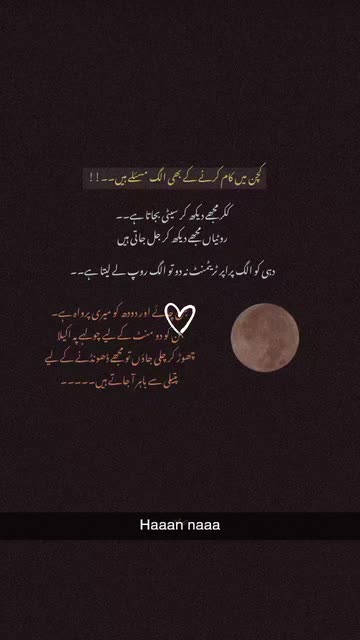 کچن میں کام کرنے کے بھی الگ مسئلے ہیں۔۔!!
ککر مجھے دیکھ کر سیٹی بجاتا ہے۔۔
روٹیاں مجھے دیکھ کر جل جاتی ہیں
دہی کو الگ پراپر ٹریٹمنٹ نہ دو تو الگ روپ لے لیتا ہے۔۔
چائے اور دودھ کو میری پرواہ ہے۔
کو دو منٹ کے لیے چولہے پہ اکیلا
چھوڑ کر چلی جاؤں تو مجھے ڈھونڈنے کے لیے
پتیلی سے باہر آ جاتے ہیں۔۔۔۔۔
Haaan naaa